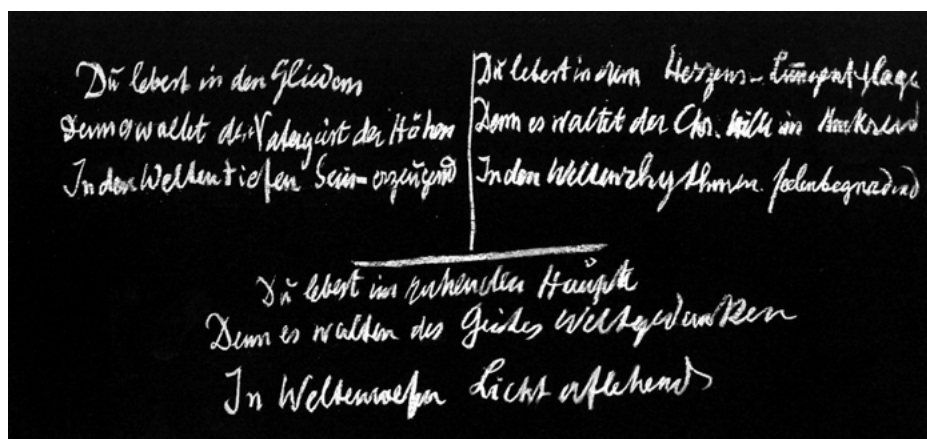 Du lebest in den Gliedern
Denn es waltet der Vatergeist der Höhen
In den Weltentiefen Sein-erzeugend
Du lebest in dem Herzens-Lungenschlage
Denn es waltet der Chr. Wille im Umkreis
In den Weltenrhythmen Seelenbegnadend
Du lebest im ruhenden Haupte
Denn es walten des Geistes Weltgedanken
In Weltenwesen Licht erflehend